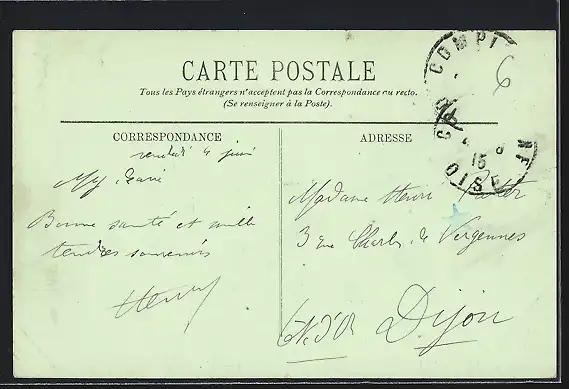 CARTE POSTALE
Tous les Pays étrangers n'acceptent pas la Correspondance au recto.
(Se renseigner à la Poste).
CORRESPONDANCE
vendredi 4 juin
Bonne santé et mille
tendres souvenirs
Henry
ADRESSE
Madame Henri
3 rue Charles de Vergennes
Dijon
COMPI
OISE
15
6